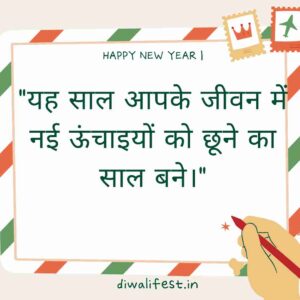 HAPPY NEW YEAR |
"यह साल आपके जीवन में
नई ऊंचाइयों को छूने का
साल बने।"
diwalifest.in